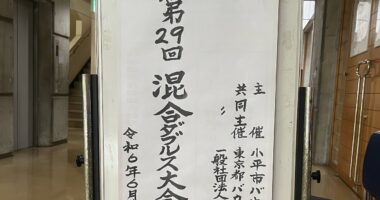 第29回 混合ダブルス大会
令和6年6月
主 催 小平市バ
共同主催 東京都バ
一般社団法人